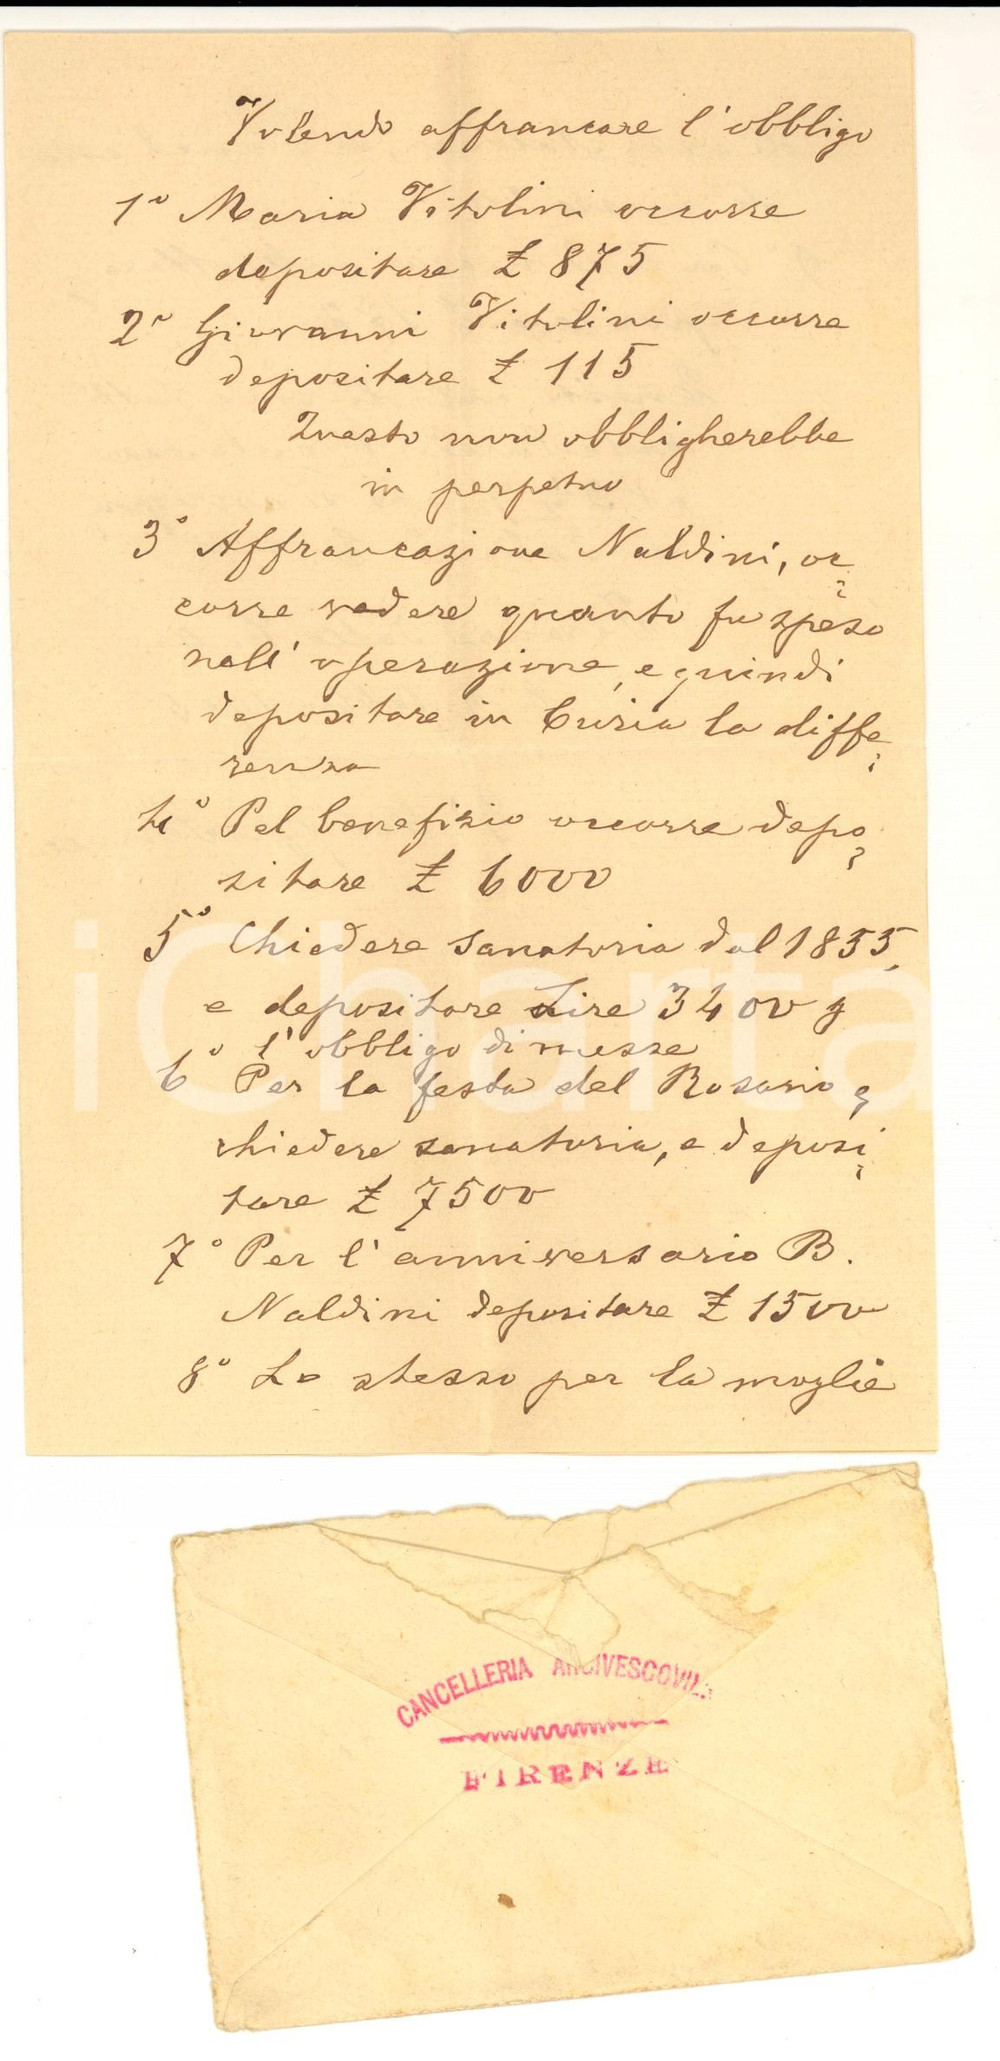 Volendo affrancare l'obbligo
1º Maria Vitolini occorre
depositare £ 875
2º Giovanni Vitolini occorre
depositare £ 115
Questo non obbligherebbe
in perpetuo
3º Affrancazione Naldini, oc
corre vedere quanto fu speso
nell'operazione, e quindi
depositare in Curia la diffe
renza
4º Pel benefizio occorre depo
sitare £ 6000
5º Chiedere sanatoria dal 1855,
e depositare Lire 3400 p
l'obbligo di messe
6º Per la festa del Rosario
chiedere sanatoria, e deposi
tare £ 7500
7º Per l'anniversario B.
Naldini depositare £ 1500
8º Lo stesso per la moglie
iCharta
CANCELLERIA ARCIVESCOVILE
FIRENZE